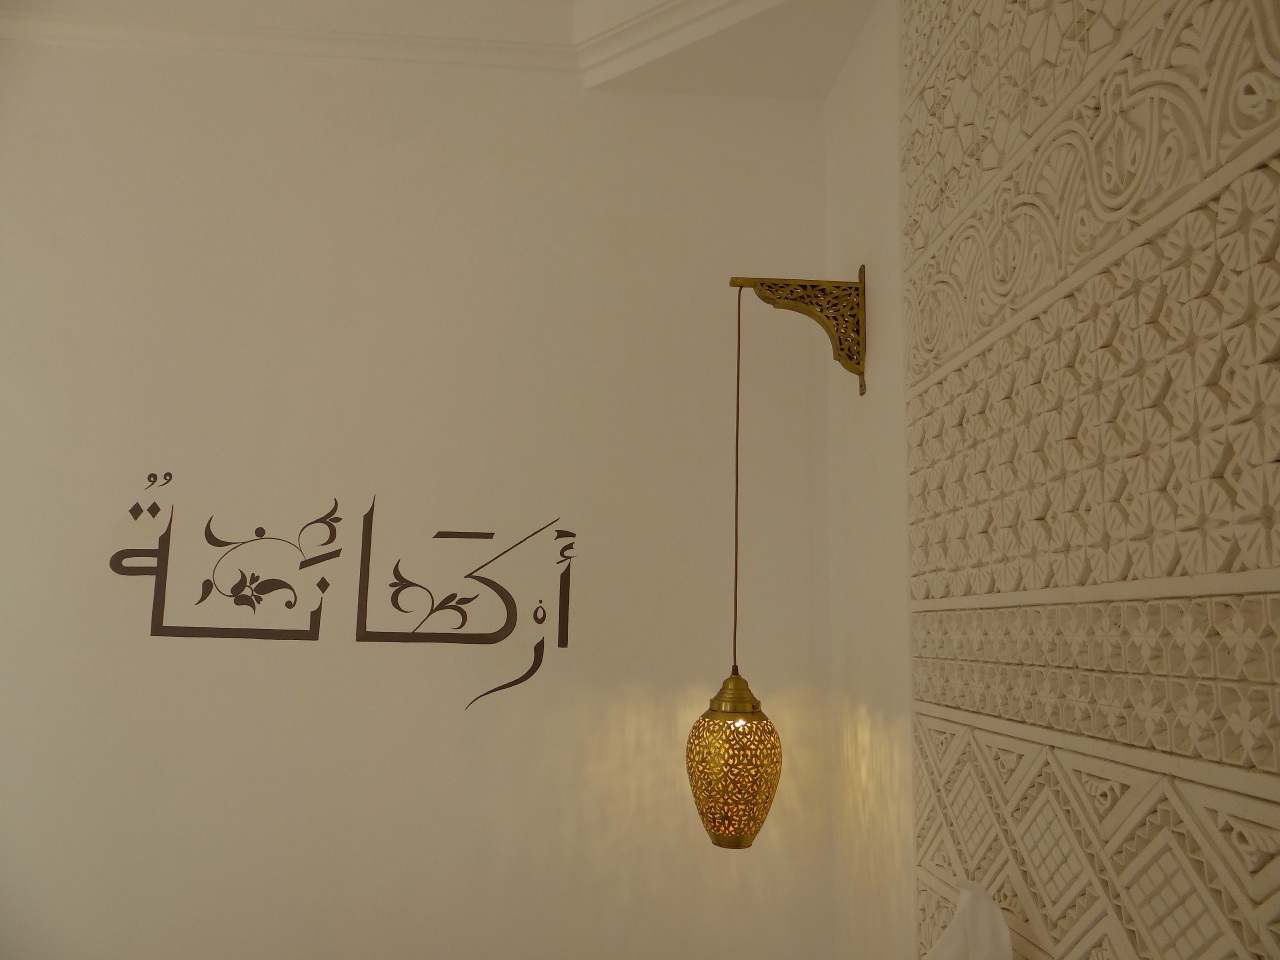 أَرْكَانَةٌ